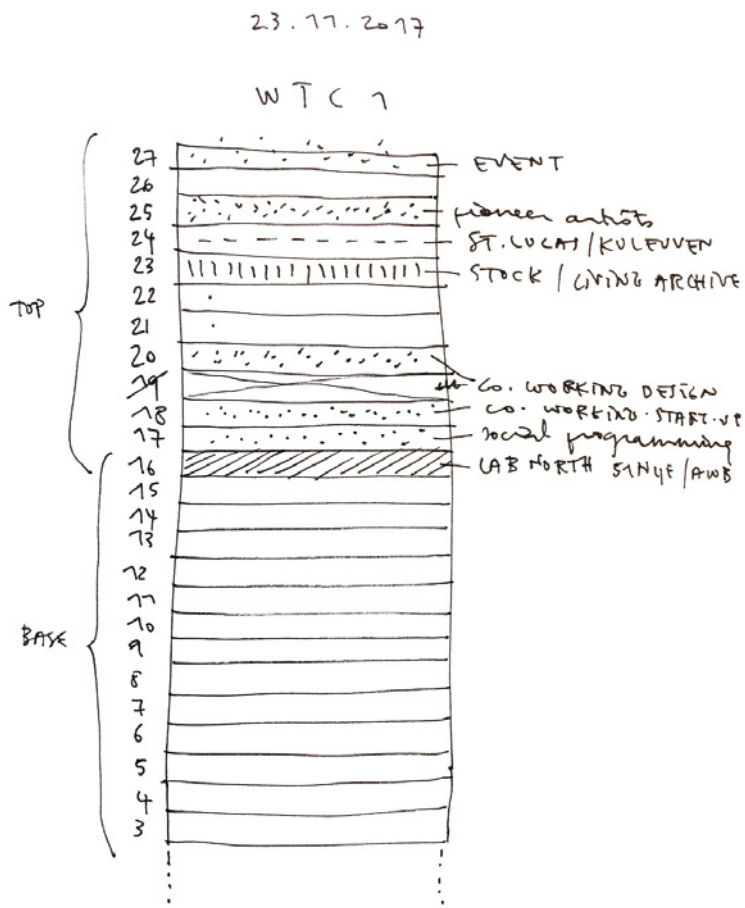 23.11.2017
WTC 1
27 EVENT
26
25 pioneer artists
24 ST.LUCAS/KULEUVEN
23 STOCK / LIVING ARCHIVE
22
TOP
21
20
19 CO.WORKING DESIGN
18 CO.WORKING.START-UP
17 social programming
16 LAB NORTH 51N4E/AWB
15
14
13
12
11
10
BASE
9
8
7
6
5
4
3